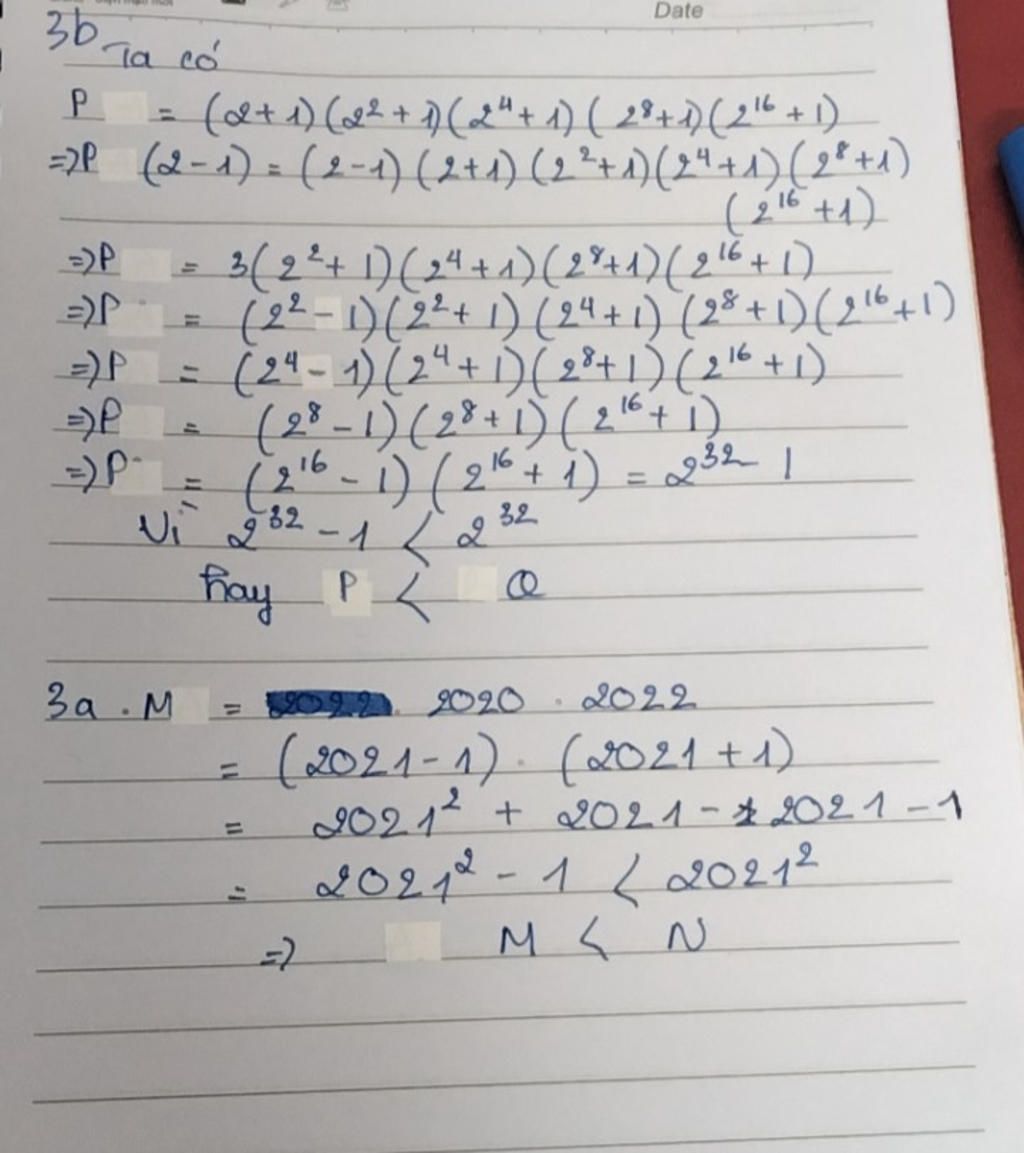 Date
3b
Ta có
P = (2+1)(2²+1)(2⁴+1)(2⁸+1)(2¹⁶+1)
=>P (2-1) = (2-1)(2+1)(2²+1)(2⁴+1)(2⁸+1)
(2¹⁶+1)
=>P = 3(2²+1)(2⁴+1)(2⁸+1)(2¹⁶+1)
=>P = (2²-1)(2²+1)(2⁴+1)(2⁸+1)(2¹⁶+1)
=>P = (2⁴-1)(2⁴+1)(2⁸+1)(2¹⁶+1)
=>P = (2⁸-1)(2⁸+1)(2¹⁶+1)
=>P = (2¹⁶-1)(2¹⁶+1) = 2³²- 1
Vì 2³²-1 < 2³²
hay P < Q
3a . M = 2020 . 2022
= (2021-1) . (2021+1)
= 2021² + 2021 - 2021 - 1
= 2021² - 1 < 2021²
=> M < N